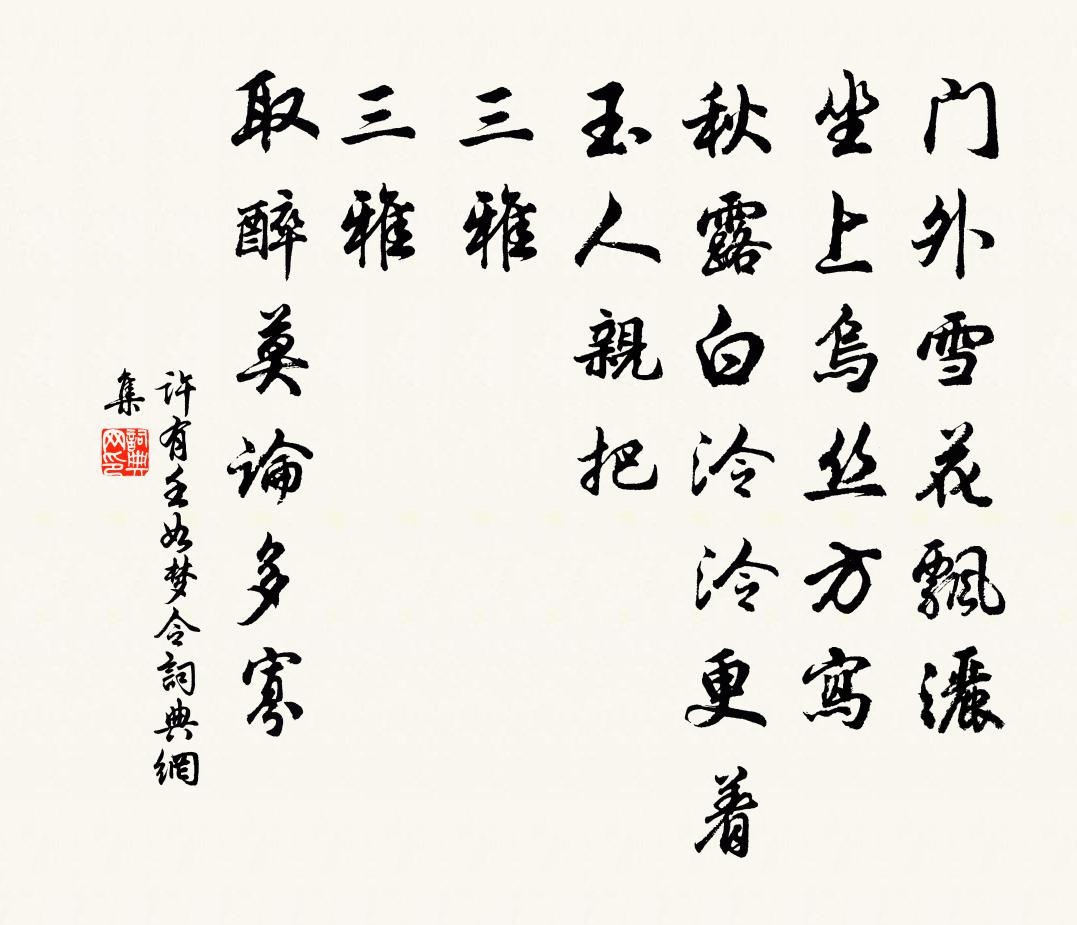 门外雪花飄灑
坐上烏丝方寫
秋露白泠泠更着
玉人親把
三雅
三雅
取醉莫論多寡
许有壬如梦令詞典網
集
詞典
网印